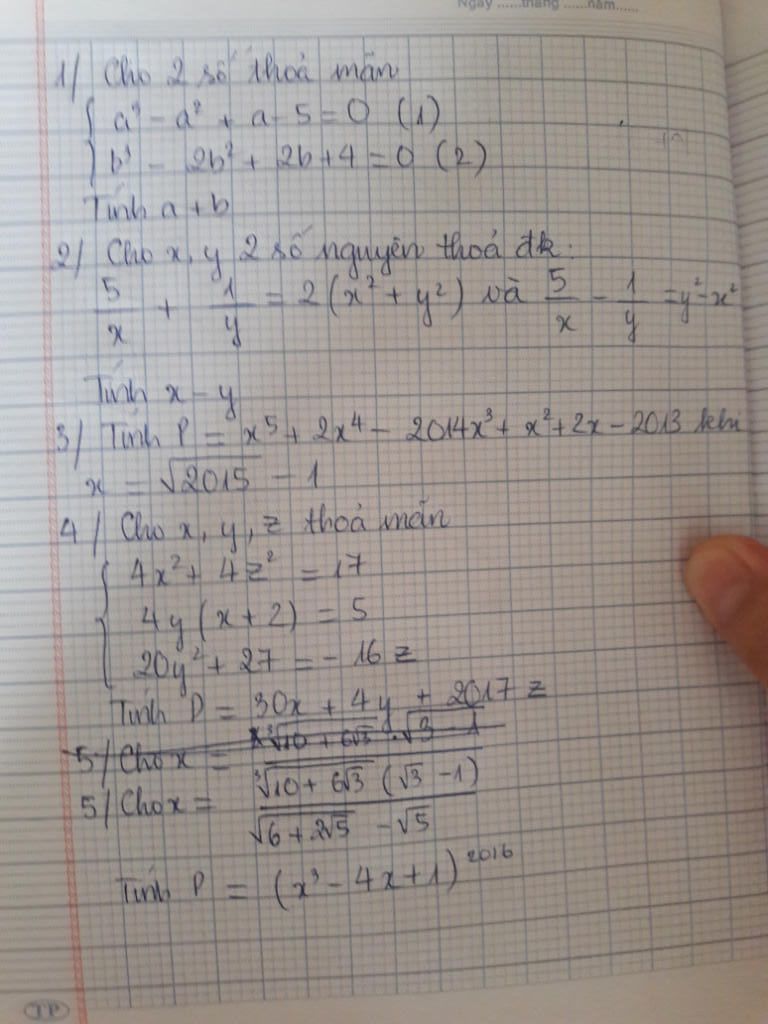 Ngày ......tháng ......năm......
1/ Cho 2 số thoả mãn
a³ - a² + a - 5 = 0 (1)
b³ - 2b² + 2b + 4 = 0 (2)
Tính a + b
2/ Cho x, y 2 số nguyên thoả đk:
5/x + 1/y = 2(x² + y²) và 5/x - 1/y = y² - x²
Tính x - y
3/ Tính P = x⁵ + 2x⁴ - 2014x³ + x² + 2x - 2013
x = √2015 - 1
4/ Cho x, y, z thoả mãn
4x² + 4z² = 17
4y(x + 2) = 5
20y² + 27 = - 16z
Tính P = 30x + 4y + 2017z
5/ Cho x =
5/ Cho x = ³√(10 + 6√3) (√3 - 1) / (√(6 + 2√5) - √5)
Tính P = (x³ - 4x + 1)²⁰¹⁶